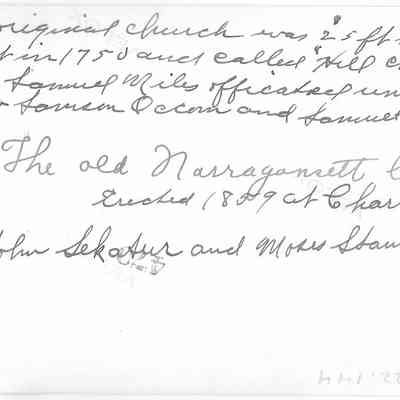 original church was "25 ft
t in 1750 and called "Hill C
Samuel Miles officated un
Samson Occom and Samuel
The old Narragansett C
Erected 1859 at Char
John Sekatur and Moses Stan